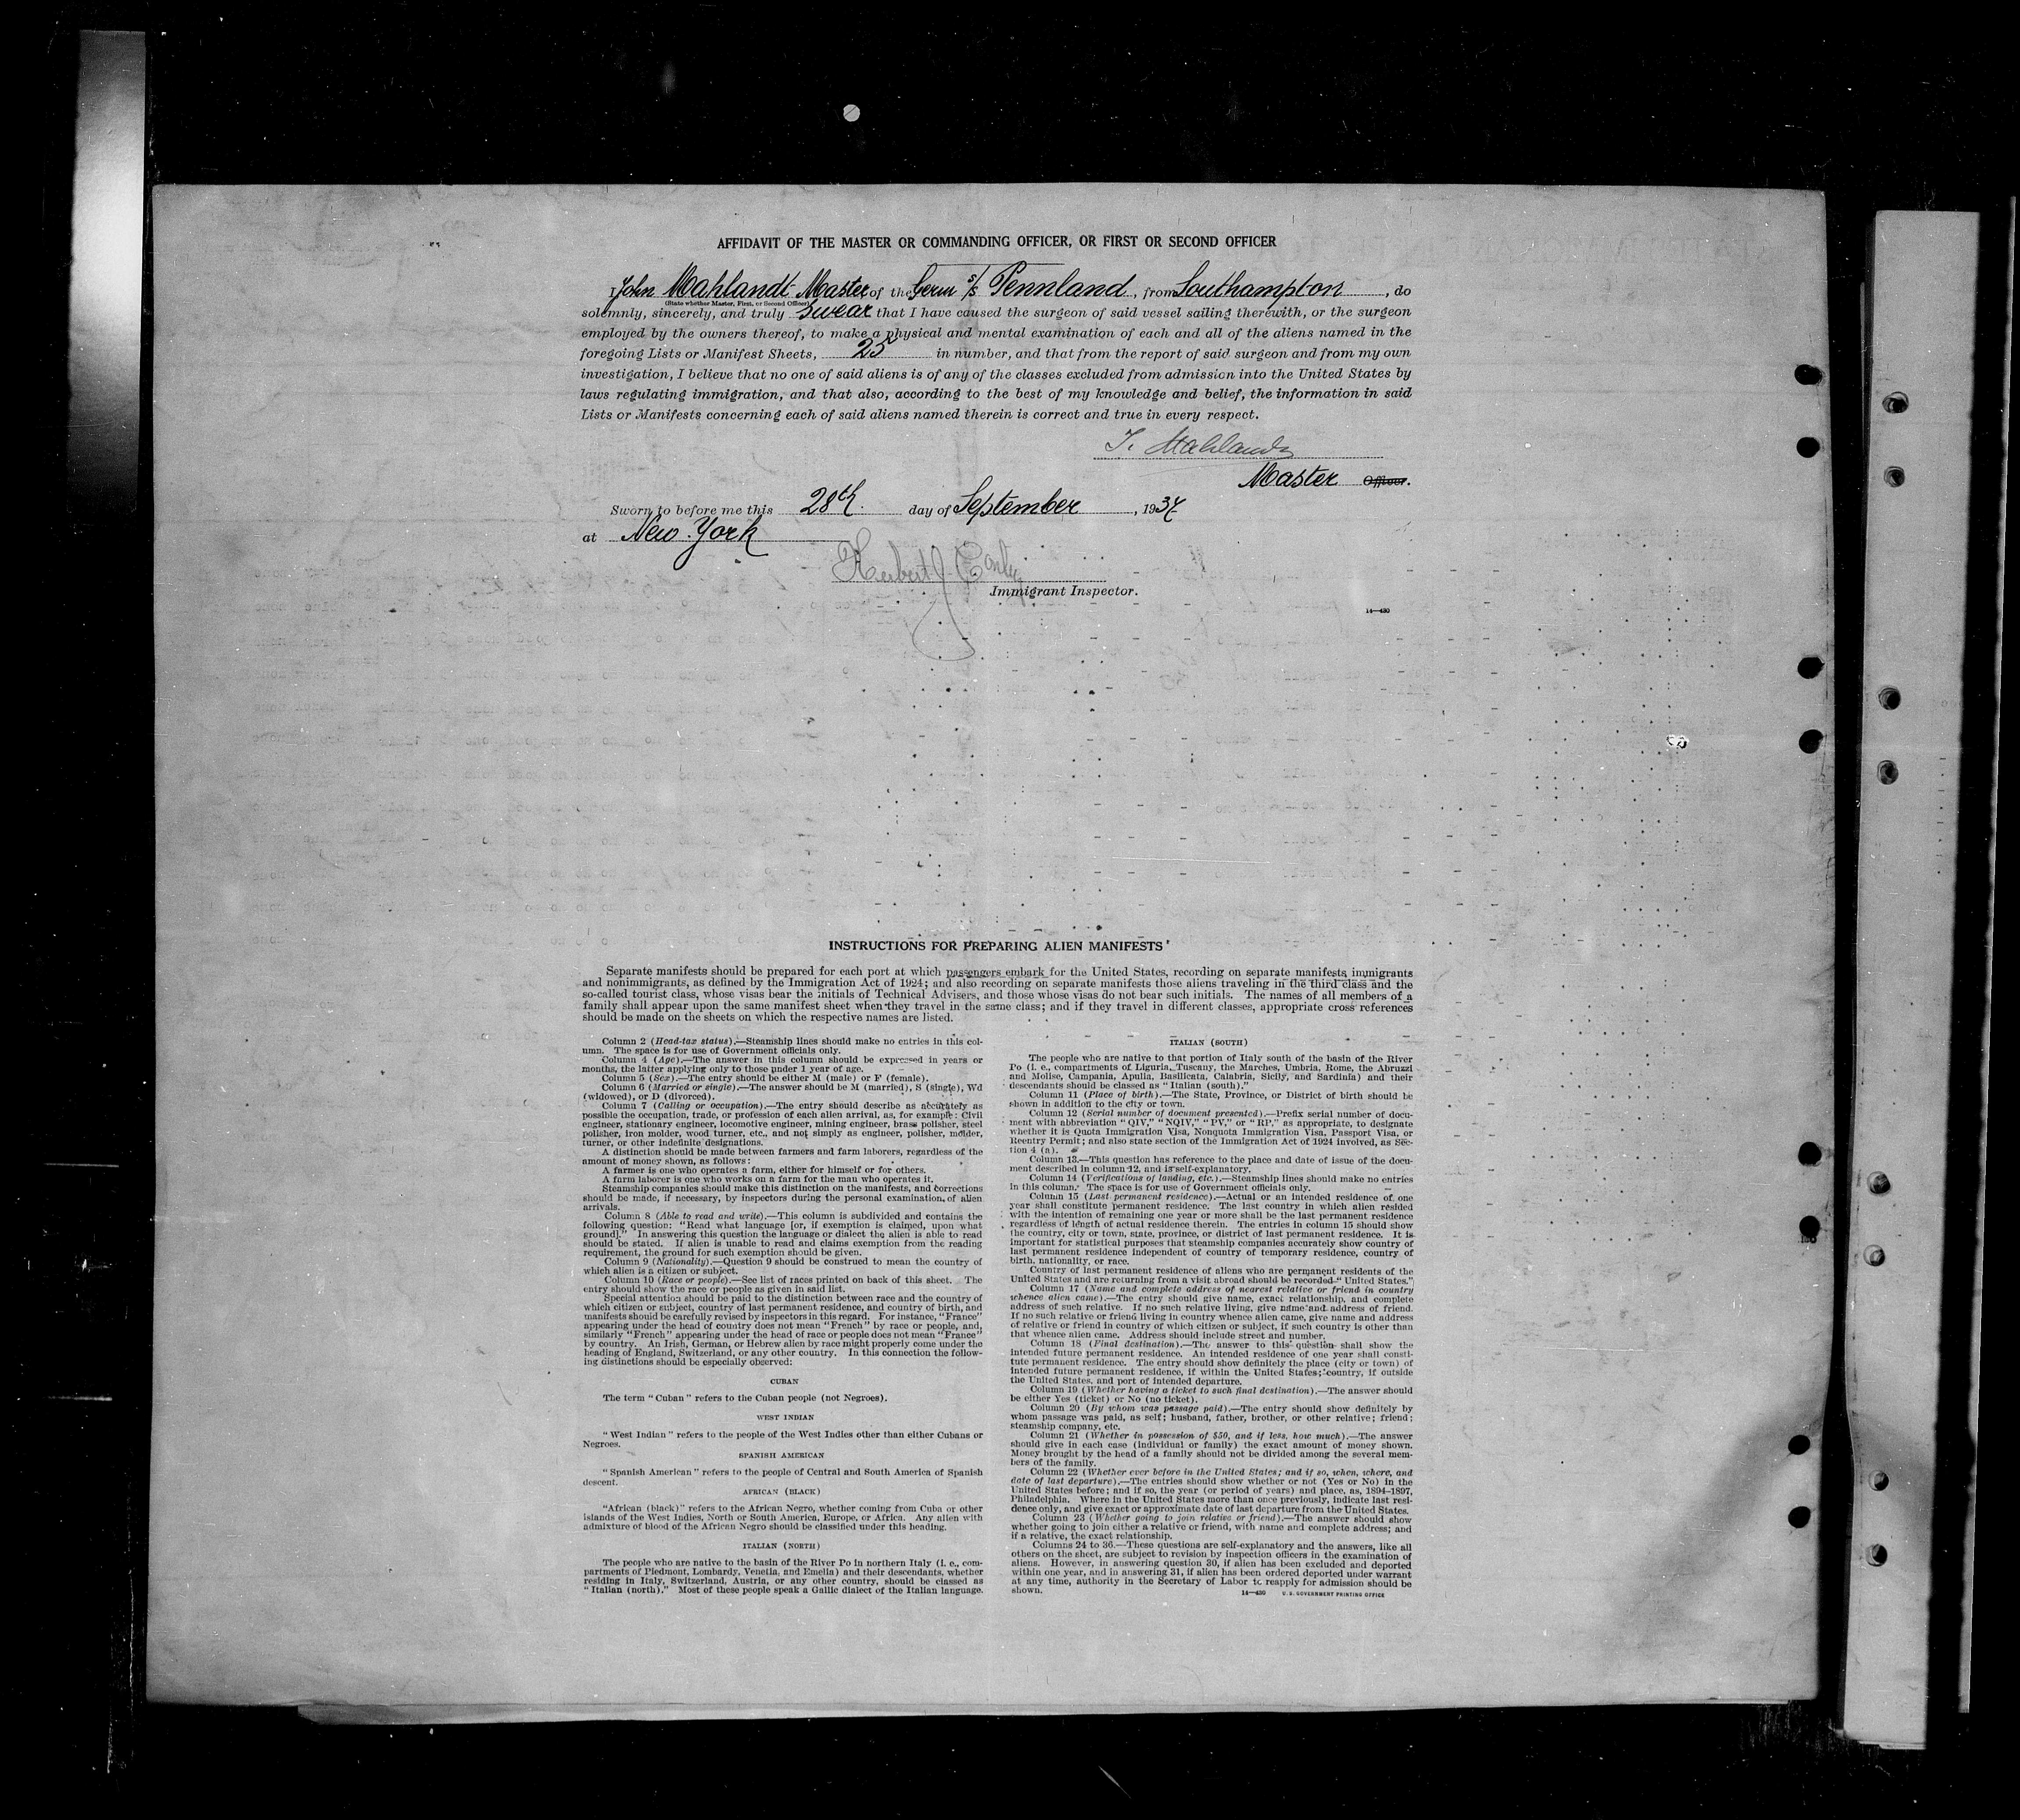 AFFIDAVIT OF THE MASTER OR COMMANDING OFFICER, OR FIRST OR SECOND OFFICER
I, John Mahlandt Master of the Germ s/s Pennland, from Southampton, do
(State whether Master, First, or Second Officer)
solemnly, sincerely, and truly swear that I have caused the surgeon of said vessel sailing therewith, or the surgeon
employed by the owners thereof, to make a physical and mental examination of each and all of the aliens named in the
foregoing Lists or Manifest Sheets, 25 in number, and that from the report of said surgeon and from my own
investigation, I believe that no one of said aliens is of any of the classes excluded from admission into the United States by
laws regulating immigration, and that also, according to the best of my knowledge and belief, the information in said
Lists or Manifests concerning each of said aliens named therein is correct and true in every respect.
J. Mahlandt
Master Officer.
Sworn to before me this 28th. day of September, 1937
at New York
Herbert J
Immigrant Inspector.
14—430
INSTRUCTIONS FOR PREPARING ALIEN MANIFESTS
Separate manifests should be prepared for each port at which passengers embark for the United States, recording on separate manifests immigrants
and nonimmigrants, as defined by the Immigration Act of 1924; and also recording on separate manifests those aliens traveling in the third class and the
so-called tourist class, whose visas bear the initials of Technical Advisers, and those whose visas do not bear such initials. The names of all members of a
family shall appear upon the same manifest sheet when they travel in the same class; and if they travel in different classes, appropriate cross references
should be made on the sheets on which the respective names are listed.
Column 2 (Head-tax status).—Steamship lines should make no entries in this col-
umn. The space is for use of Government officials only.
Column 4 (Age).—The answer in this column should be expressed in years or
months, the latter applying only to those under 1 year of age.
Column 5 (Sex).—The entry should be either M (male) or F (female).
Column 6 (Married or single).—The answer should be M (married), S (single), Wd
(widowed), or D (divorced).
Column 7 (Calling or occupation).—The entry should describe as accurately as
possible the occupation, trade, or profession of each alien arrival, as, for example: Civil
engineer, stationary engineer, locomotive engineer, mining engineer, brass polisher, steel
polisher, iron molder, wood turner, etc., and not simply as engineer, polisher, molder,
turner, or other indefinite designations.
A distinction should be made between farmers and farm laborers, regardless of the
amount of money shown, as follows:
A farmer is one who operates a farm, either for himself or for others.
A farm laborer is one who works on a farm for the man who operates it.
Steamship companies should make this distinction on the manifests, and corrections
should be made, if necessary, by inspectors during the personal examination of alien
arrivals.
Column 8 (Able to read and write).—This column is subdivided and contains the
following question: "Read what language [or, if exemption is claimed, upon what
ground]." In answering this question the language or dialect the alien is able to read
should be stated. If alien is unable to read and claims exemption from the reading
requirement, the ground for such exemption should be given.
Column 9 (Nationality).—Question 9 should be construed to mean the country of
which alien is a citizen or subject.
Column 10 (Race or people).—See list of races printed on back of this sheet. The
entry should show the race or people as given in said list.
Special attention should be paid to the distinction between race and the country of
which citizen or subject, country of last permanent residence, and country of birth, and
manifests should be carefully revised by inspectors in this regard. For instance, "France"
appearing under the head of country does not mean "French" by race or people, and,
similarly "French" appearing under the head of race or people does not mean "France"
by country. An Irish, German, or Hebrew alien by race might properly come under the
heading of England, Switzerland, or any other country. In this connection the follow-
ing distinctions should be especially observed:
CUBAN
The term "Cuban" refers to the Cuban people (not Negroes).
WEST INDIAN
"West Indian" refers to the people of the West Indies other than either Cubans or
Negroes.
SPANISH AMERICAN
"Spanish American" refers to the people of Central and South America of Spanish
descent.
AFRICAN (BLACK)
"African (black)" refers to the African Negro, whether coming from Cuba or other
islands of the West Indies, North or South America, Europe, or Africa. Any alien with
admixture of blood of the African Negro should be classified under this heading.
ITALIAN (NORTH)
The people who are native to the basin of the River Po in northern Italy (i. e., com-
partments of Piedmont, Lombardy, Venetia, and Emelia) and their descendants, whether
residing in Italy, Switzerland, Austria, or any other country, should be classed as
"Italian (north)." Most of these people speak a Gallic dialect of the Italian language.
ITALIAN (SOUTH)
The people who are native to that portion of Italy south of the basin of the River
Po (i. e., compartments of Liguria, Tuscany, the Marches, Umbria, Rome, the Abruzzi
and Molise, Campania, Apulia, Basilicata, Calabria, Sicily, and Sardinia) and their
descendants should be classed as "Italian (south)."
Column 11 (Place of birth).—The State, Province, or District of birth should be
shown in addition to the city or town.
Column 12 (Serial number of document presented).—Prefix serial number of docu-
ment with abbreviation "QIV," "NQIV," "PV," or "RP," as appropriate, to designate
whether it is Quota Immigration Visa, Nonquota Immigration Visa, Passport Visa, or
Reentry Permit; and also state section of the Immigration Act of 1924 involved, as Sec-
tion 4 (a).
Column 13.—This question has reference to the place and date of issue of the docu-
ment described in column 12, and is self-explanatory.
Column 14 (Verifications of landing, etc.).—Steamship lines should make no entries
in this column. The space is for use of Government officials only.
Column 15 (Last permanent residence).—Actual or an intended residence of one
year shall constitute permanent residence. The last country in which alien resided
with the intention of remaining one year or more shall be the last permanent residence
regardless of length of actual residence therein. The entries in column 15 should show
the country, city or town, state, province, or district of last permanent residence. It is
important for statistical purposes that steamship companies accurately show country of
last permanent residence independent of country of temporary residence, country of
birth, nationality, or race.
Country of last permanent residence of aliens who are permanent residents of the
United States and are returning from a visit abroad should be recorded "United States."
Column 17 (Name and complete address of nearest relative or friend in country
whence alien came).—The entry should give name, exact relationship, and complete
address of such relative. If no such relative living, give name and address of friend.
If no such relative or friend living in country whence alien came, give name and address
of relative or friend in country of which citizen or subject, if such country is other than
that whence alien came. Address should include street and number.
Column 18 (Final destination).—The answer to this question shall show the
intended future permanent residence. An intended residence of one year shall consti-
tute permanent residence. The entry should show definitely the place (city or town) of
intended future permanent residence, if within the United States; country, if outside
the United States, and port of intended departure.
Column 19 (Whether having a ticket to such final destination).—The answer should
be either Yes (ticket) or No (no ticket).
Column 20 (By whom was passage paid).—The entry should show definitely by
whom passage was paid, as self; husband, father, brother, or other relative; friend;
steamship company, etc.
Column 21 (Whether in possession of $50, and if less, how much).—The answer
should give in each case (individual or family) the exact amount of money shown.
Money brought by the head of a family should not be divided among the several mem-
bers of the family.
Column 22 (Whether ever before in the United States; and if so, when, where, and
date of last departure).—The entries should show whether or not (Yes or No) in the
United States before; and if so, the year (or period of years) and place, as, 1894–1897,
Philadelphia. Where in the United States more than once previously, indicate last resi-
dence only, and give exact or approximate date of last departure from the United States.
Column 23 (Whether going to join relative or friend).—The answer should show
whether going to join either a relative or friend, with name and complete address; and
if a relative, the exact relationship.
Columns 24 to 36.—These questions are self-explanatory and the answers, like all
others on the sheet, are subject to revision by inspection officers in the examination of
aliens. However, in answering question 30, if alien has been excluded and deported
within one year, and in answering 31, if alien has been ordered deported under warrant
at any time, authority in the Secretary of Labor to reapply for admission should be
shown.
14—430 U. S. GOVERNMENT PRINTING OFFICE